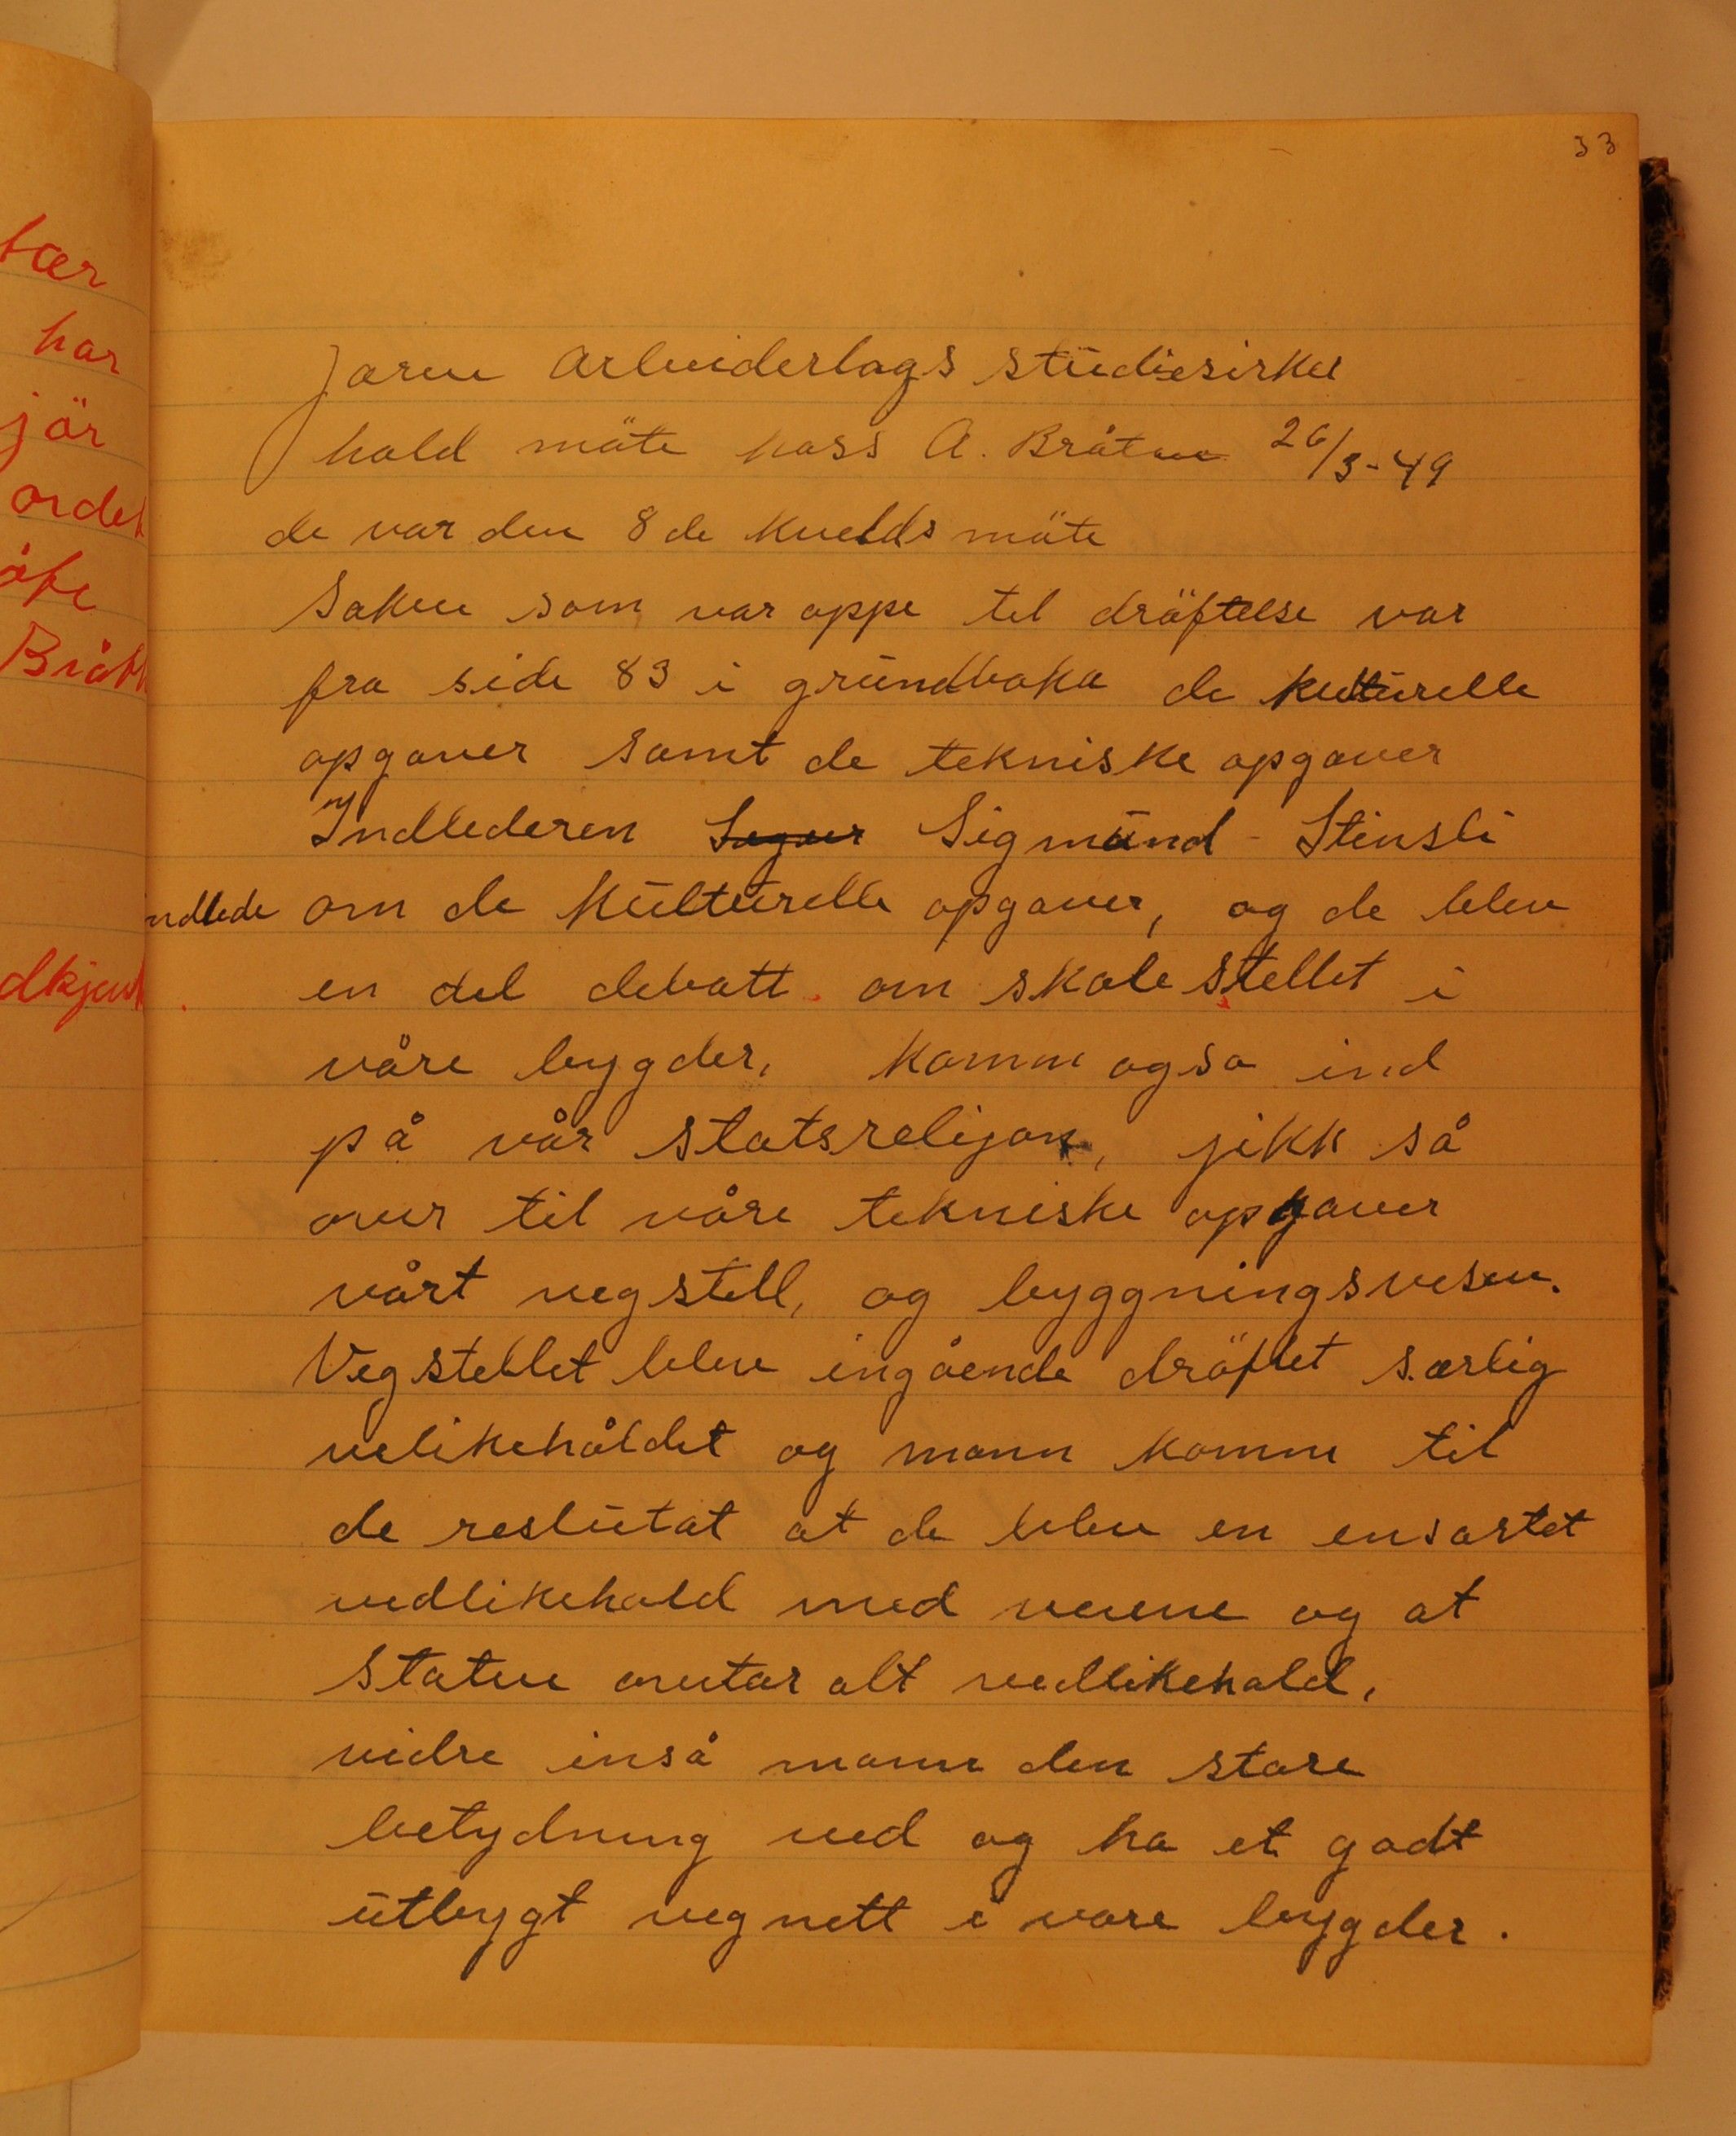 33
tær
har
jör
ordet
åte
Bråt
dkjent
Jaren Arbeiderlags studiesirkel
hold möte hoss A. Bråten 26/3-49
de var den 8 de kvelds möte
Saken som var oppe til dröftelse var
fra side 83 i grundboka de kulturelle
opgaver samt de tekniske opgaver
Indlederen Sigmund Stensli
ndlede om de kulturelle opgaver, og de blev
en del debatt om skole stellet i
våre bygder, komm ogso ind
på vår statsreligon, jikk så
over til våre tekniske opgaver
vårt vegstell, og byggningsvesen.
Vegstellet blev ingående dröftet særlig
velikeholdet og mann komm til
de reslutat at de blev en ensartet
vedlikehold med veiene og at
Staten overtar alt vedlikehold,
vidre inså mann den store
betydning ved og ha et godt
utbygt vegnett i vore bygder.